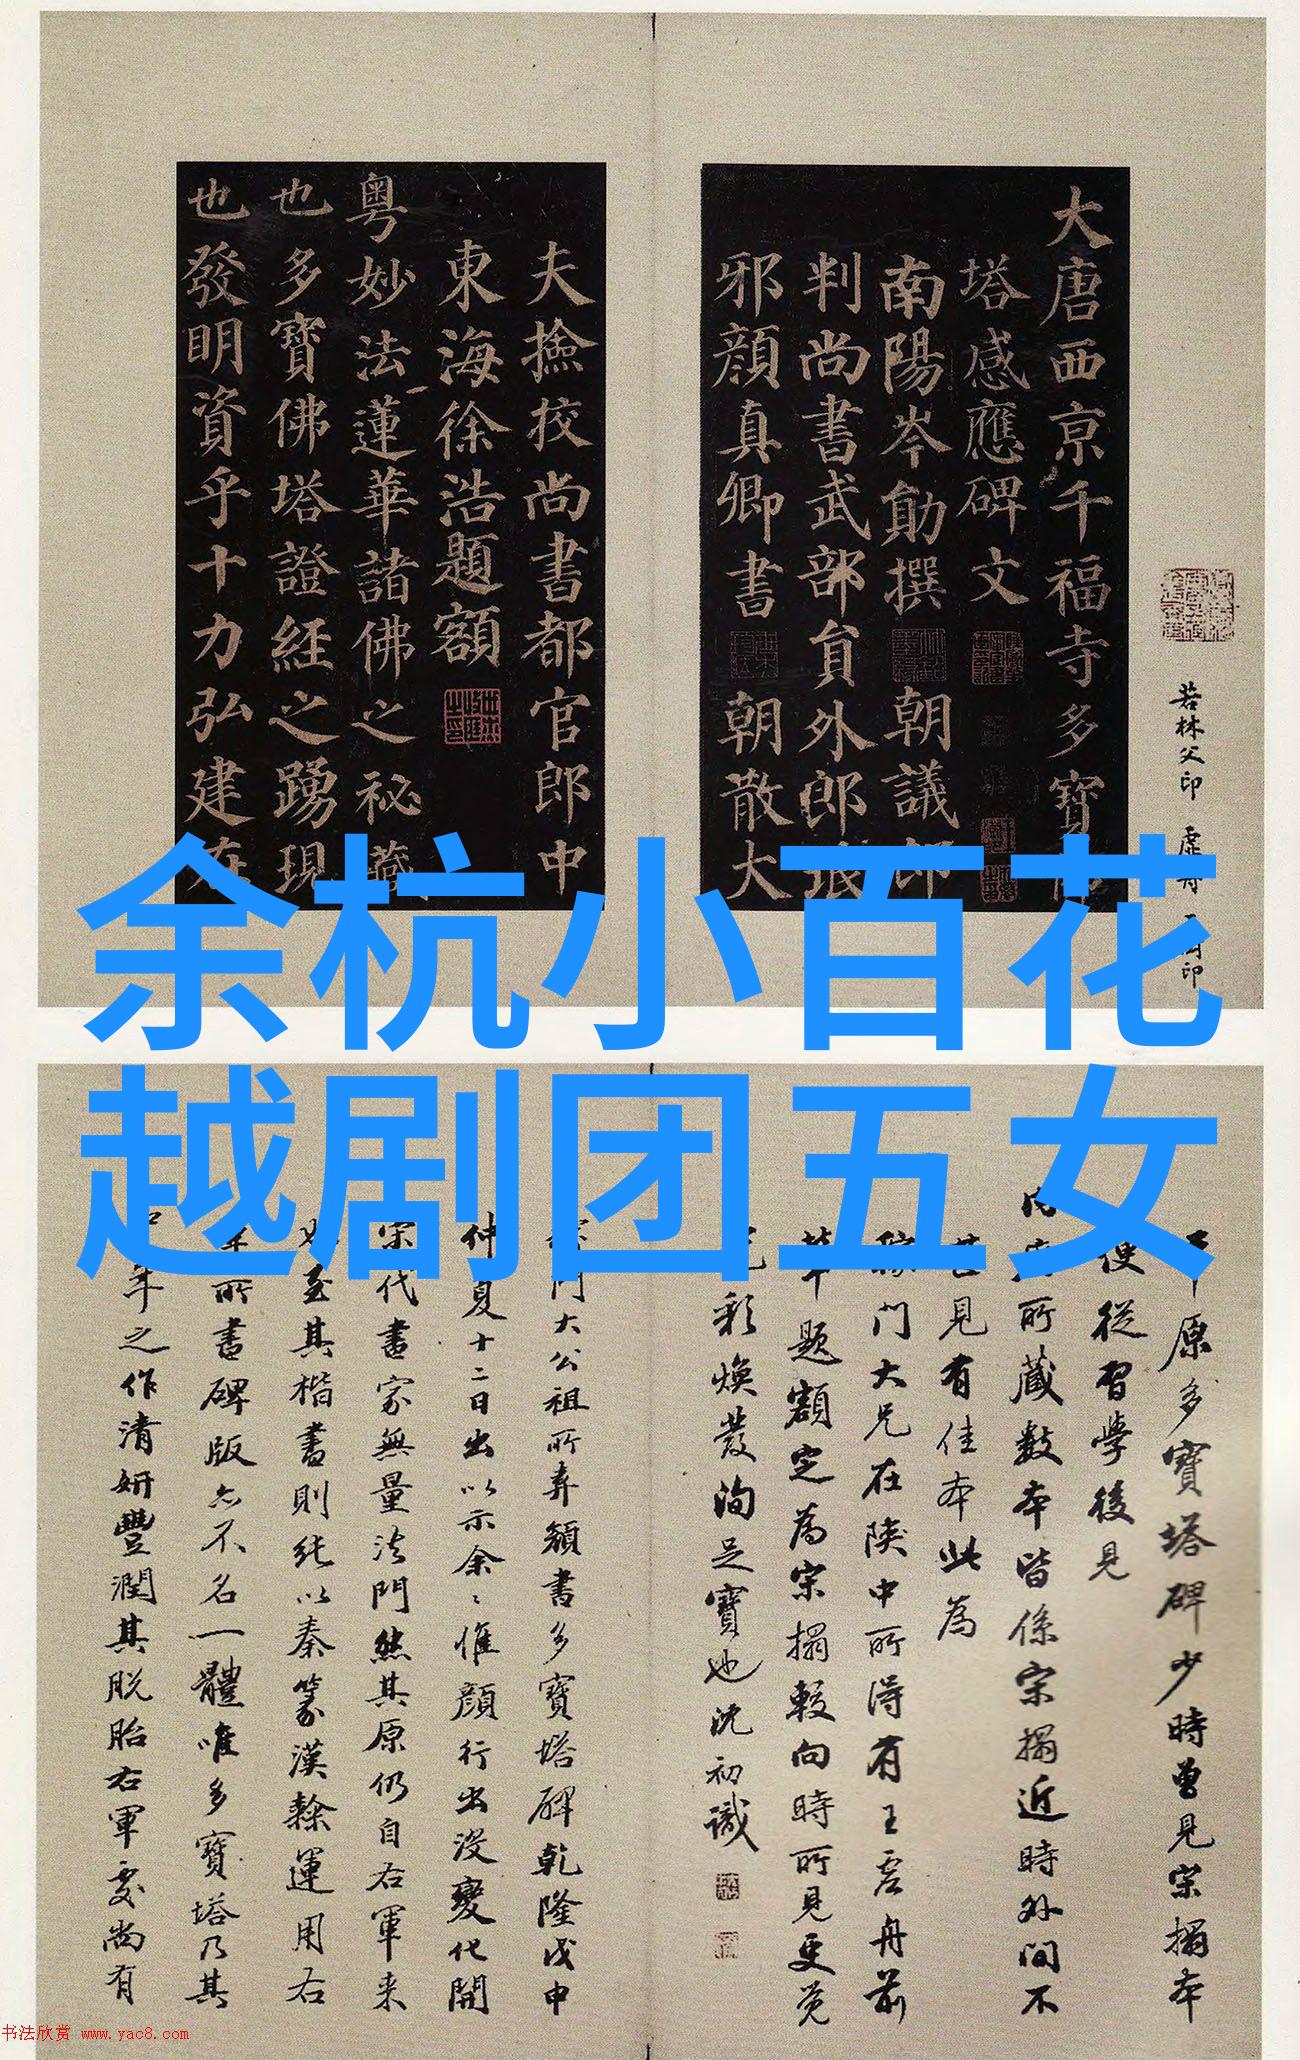 大唐西京千福寺多寶
塔感應碑文
南陽岑勛撰 朝議郎
判尚書武部員外郎琅
邪顏真卿書 朝散大
夫撿挍尚書都官郎中
東海徐浩題額
粵妙法蓮華諸佛之秘藏
也多寶佛塔證經之踴現
也發明資乎十力弘建在
若林父印
余杭小百花
越剧团五女
原多寶塔碑少時曾見宋搨本
便從習學後見
所藏數本皆係宋搨近時外間不
見有佳本此為
門大兄在陝中所得有王虛舟前
題額定為宋搨較向時所見更覺
彩煥發洵足寶也沈初識
大公祖所弆顏書多寶塔碑乾隆戊申
仲夏十二日出以示余余惟顏行出沒變化開
宋代書家無量法門然其原仍自右軍来
至其楷書則純以秦篆漢隸運用右
所書碑版亦不名一體唯多寶塔乃其
年之作清妍豐潤其脫胎右軍處尚有
书法欣赏 www.yac8.com